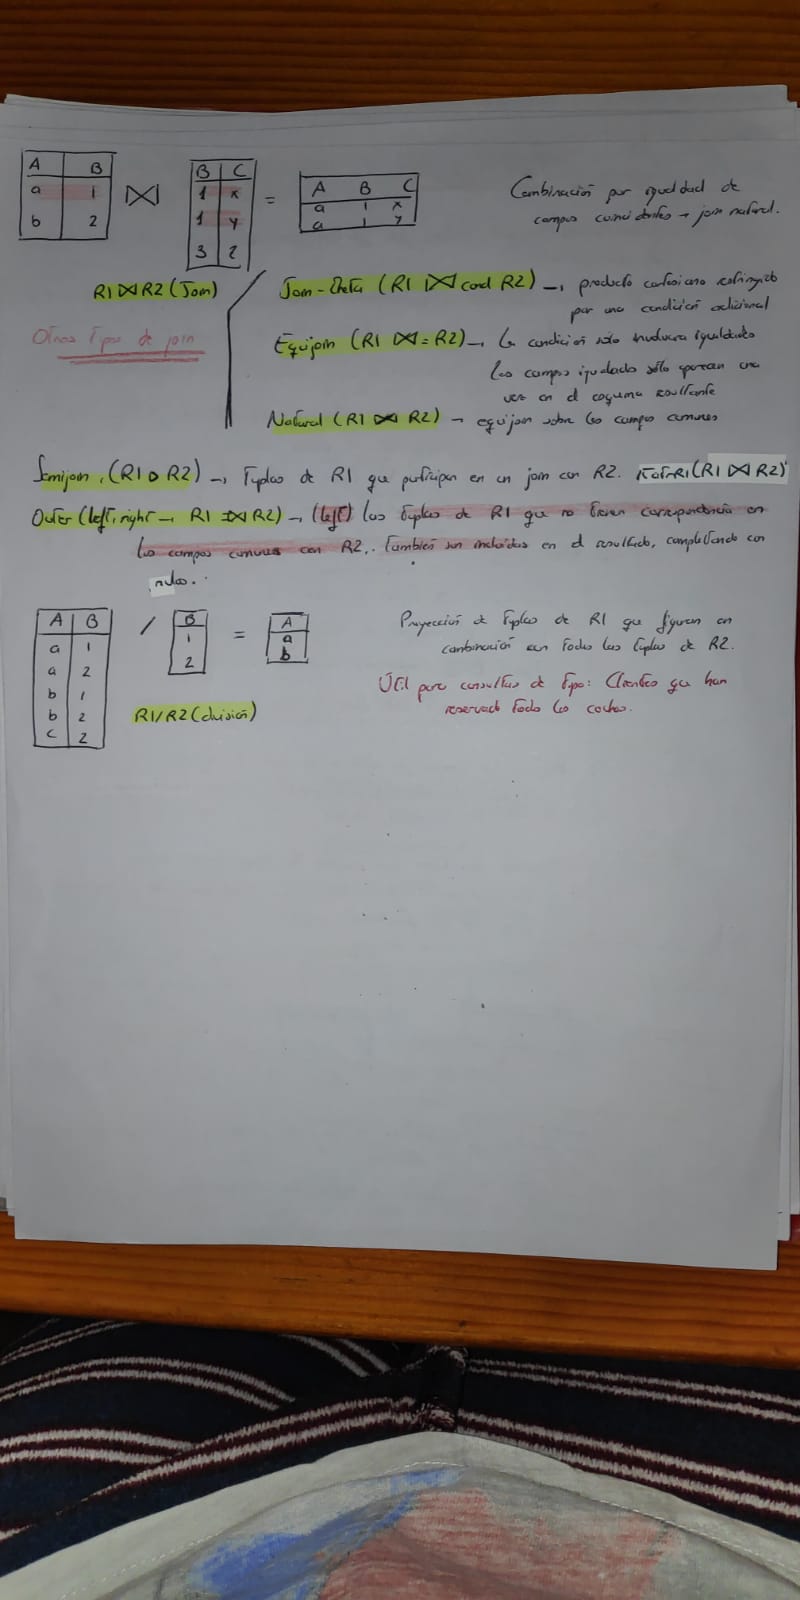 A B
a 1
b 2
⋈
B C
1 x
1 y
3 2
=
A B C
a 1 x
a 1 y
Combinación por igualdad de
campos coincidentes → join natural.
R1 ⋈ R2 (Join)
Otros tipos de join
Join-theta (R1 ⋈ cond R2) → producto cartesiano restringido
por una condición adicional
Equijoin (R1 ⋈= R2) → la condición sólo involucra igualdades
Los campos igualado sólo aparecen una
vez en el esquema resultante
Natural (R1 ⋈ R2) → equijoin sobre los campos comunes
Semijoin, (R1 ▷ R2) → Tuplas de R1 que participan en un join con R2. (R1 ⋈ R2)
Outer (left, right → R1 ⟗ R2) → (left) Las tuplas de R1 que no tienen correspondencia en
los campos comunes con R2,. También son incluidas en el resultado, completando con
nulos.
A B
a 1
a 2
b 1
b 2
c 2
/
B
1
2
=
A
a
b
R1/R2 (división)
Proyección de tuplas de R1 que figuran en
combinación con todas las tuplas de R2.
Útil para consultas de tipo: Clientes que han
reservado todo los coches.